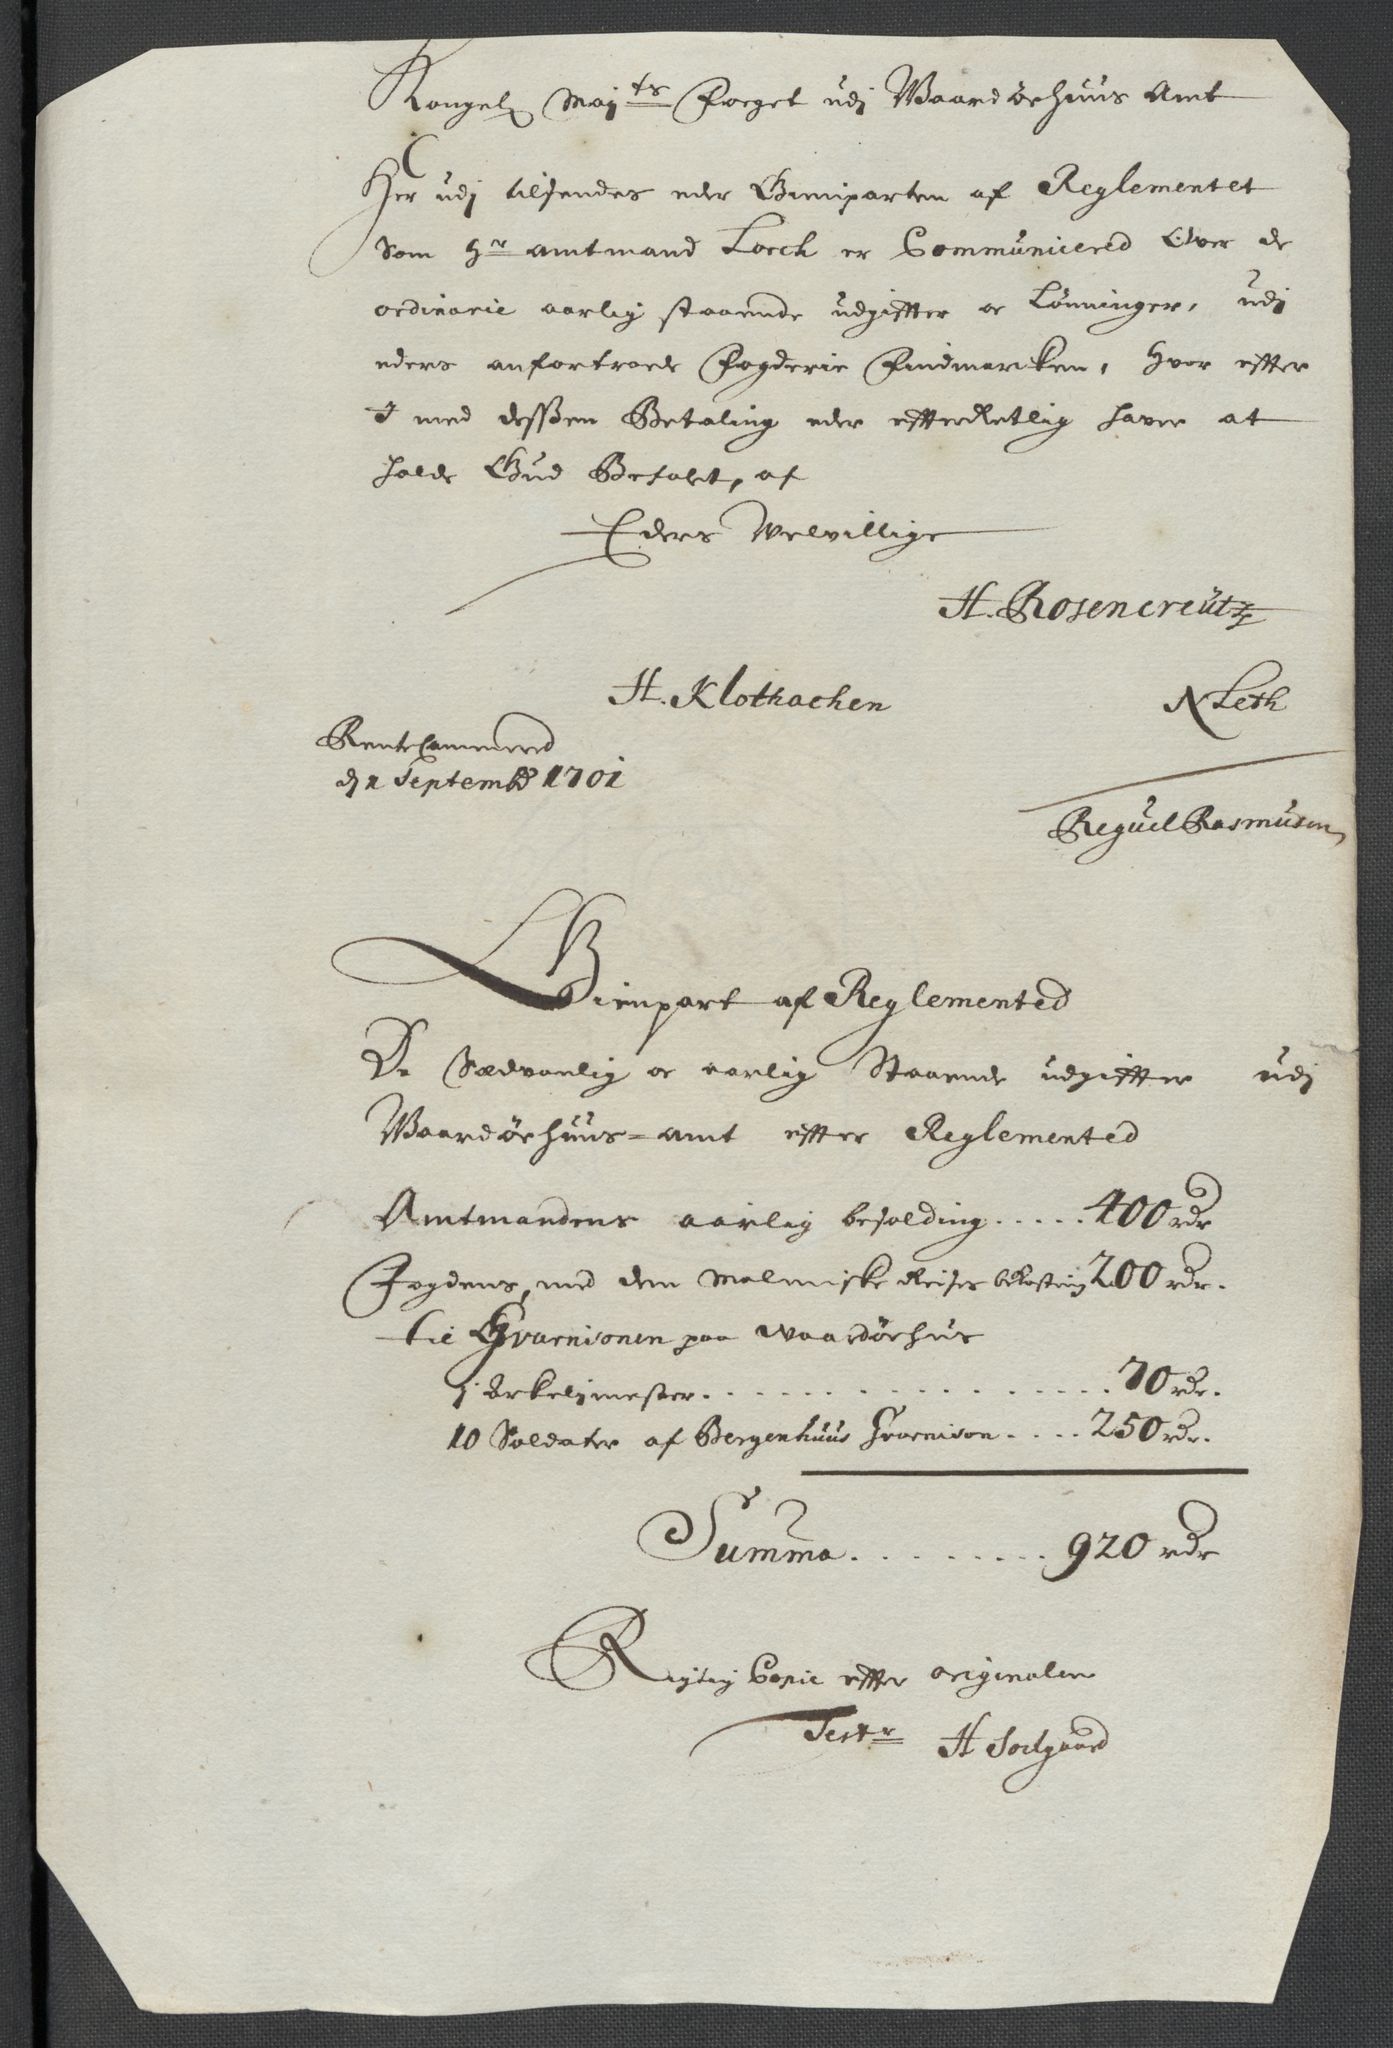 Kongel Maj ts Foeget udj Waardøehuus Amt
Her udj tilsendes eder Gienparten af Reglementet
Som Hr amtmand Lorch er Communicered Over de
ordinarie aarlig staaende udgiffter oc Lønninger, udj
eders anfortroede Fogderie Findmarken, hvor effter
I med dessen Betaling eder effterretlig haver at
holde Gud Befalet, af
Eders Velvillige
H. Rosencreütz
H. Klothachen N Leth
RenteCammered
dj 1 Septembr 1701
Reguel Rasmusen
Gienpart af Reglemented
De Sædvanlig oc aarlig Staaende udgiffter udj
Waardøehuus=amt effter Reglemented
Amtmandens aarlig besolding ..... 400 rdr
Fogdens, med dem Malmiske Reises bekostning 200 rdr.
til Gvarnisonen paa Waardøehus
1 Arkelimester. . . . . . . . . . 70 rdr.
10 Soldater af Bergenhuus Gvarnison .... 250 rdr.
Summa. . . . . . . . . 920 rdr
Rigtig Copie effter originalen
Test r H Soelgaard